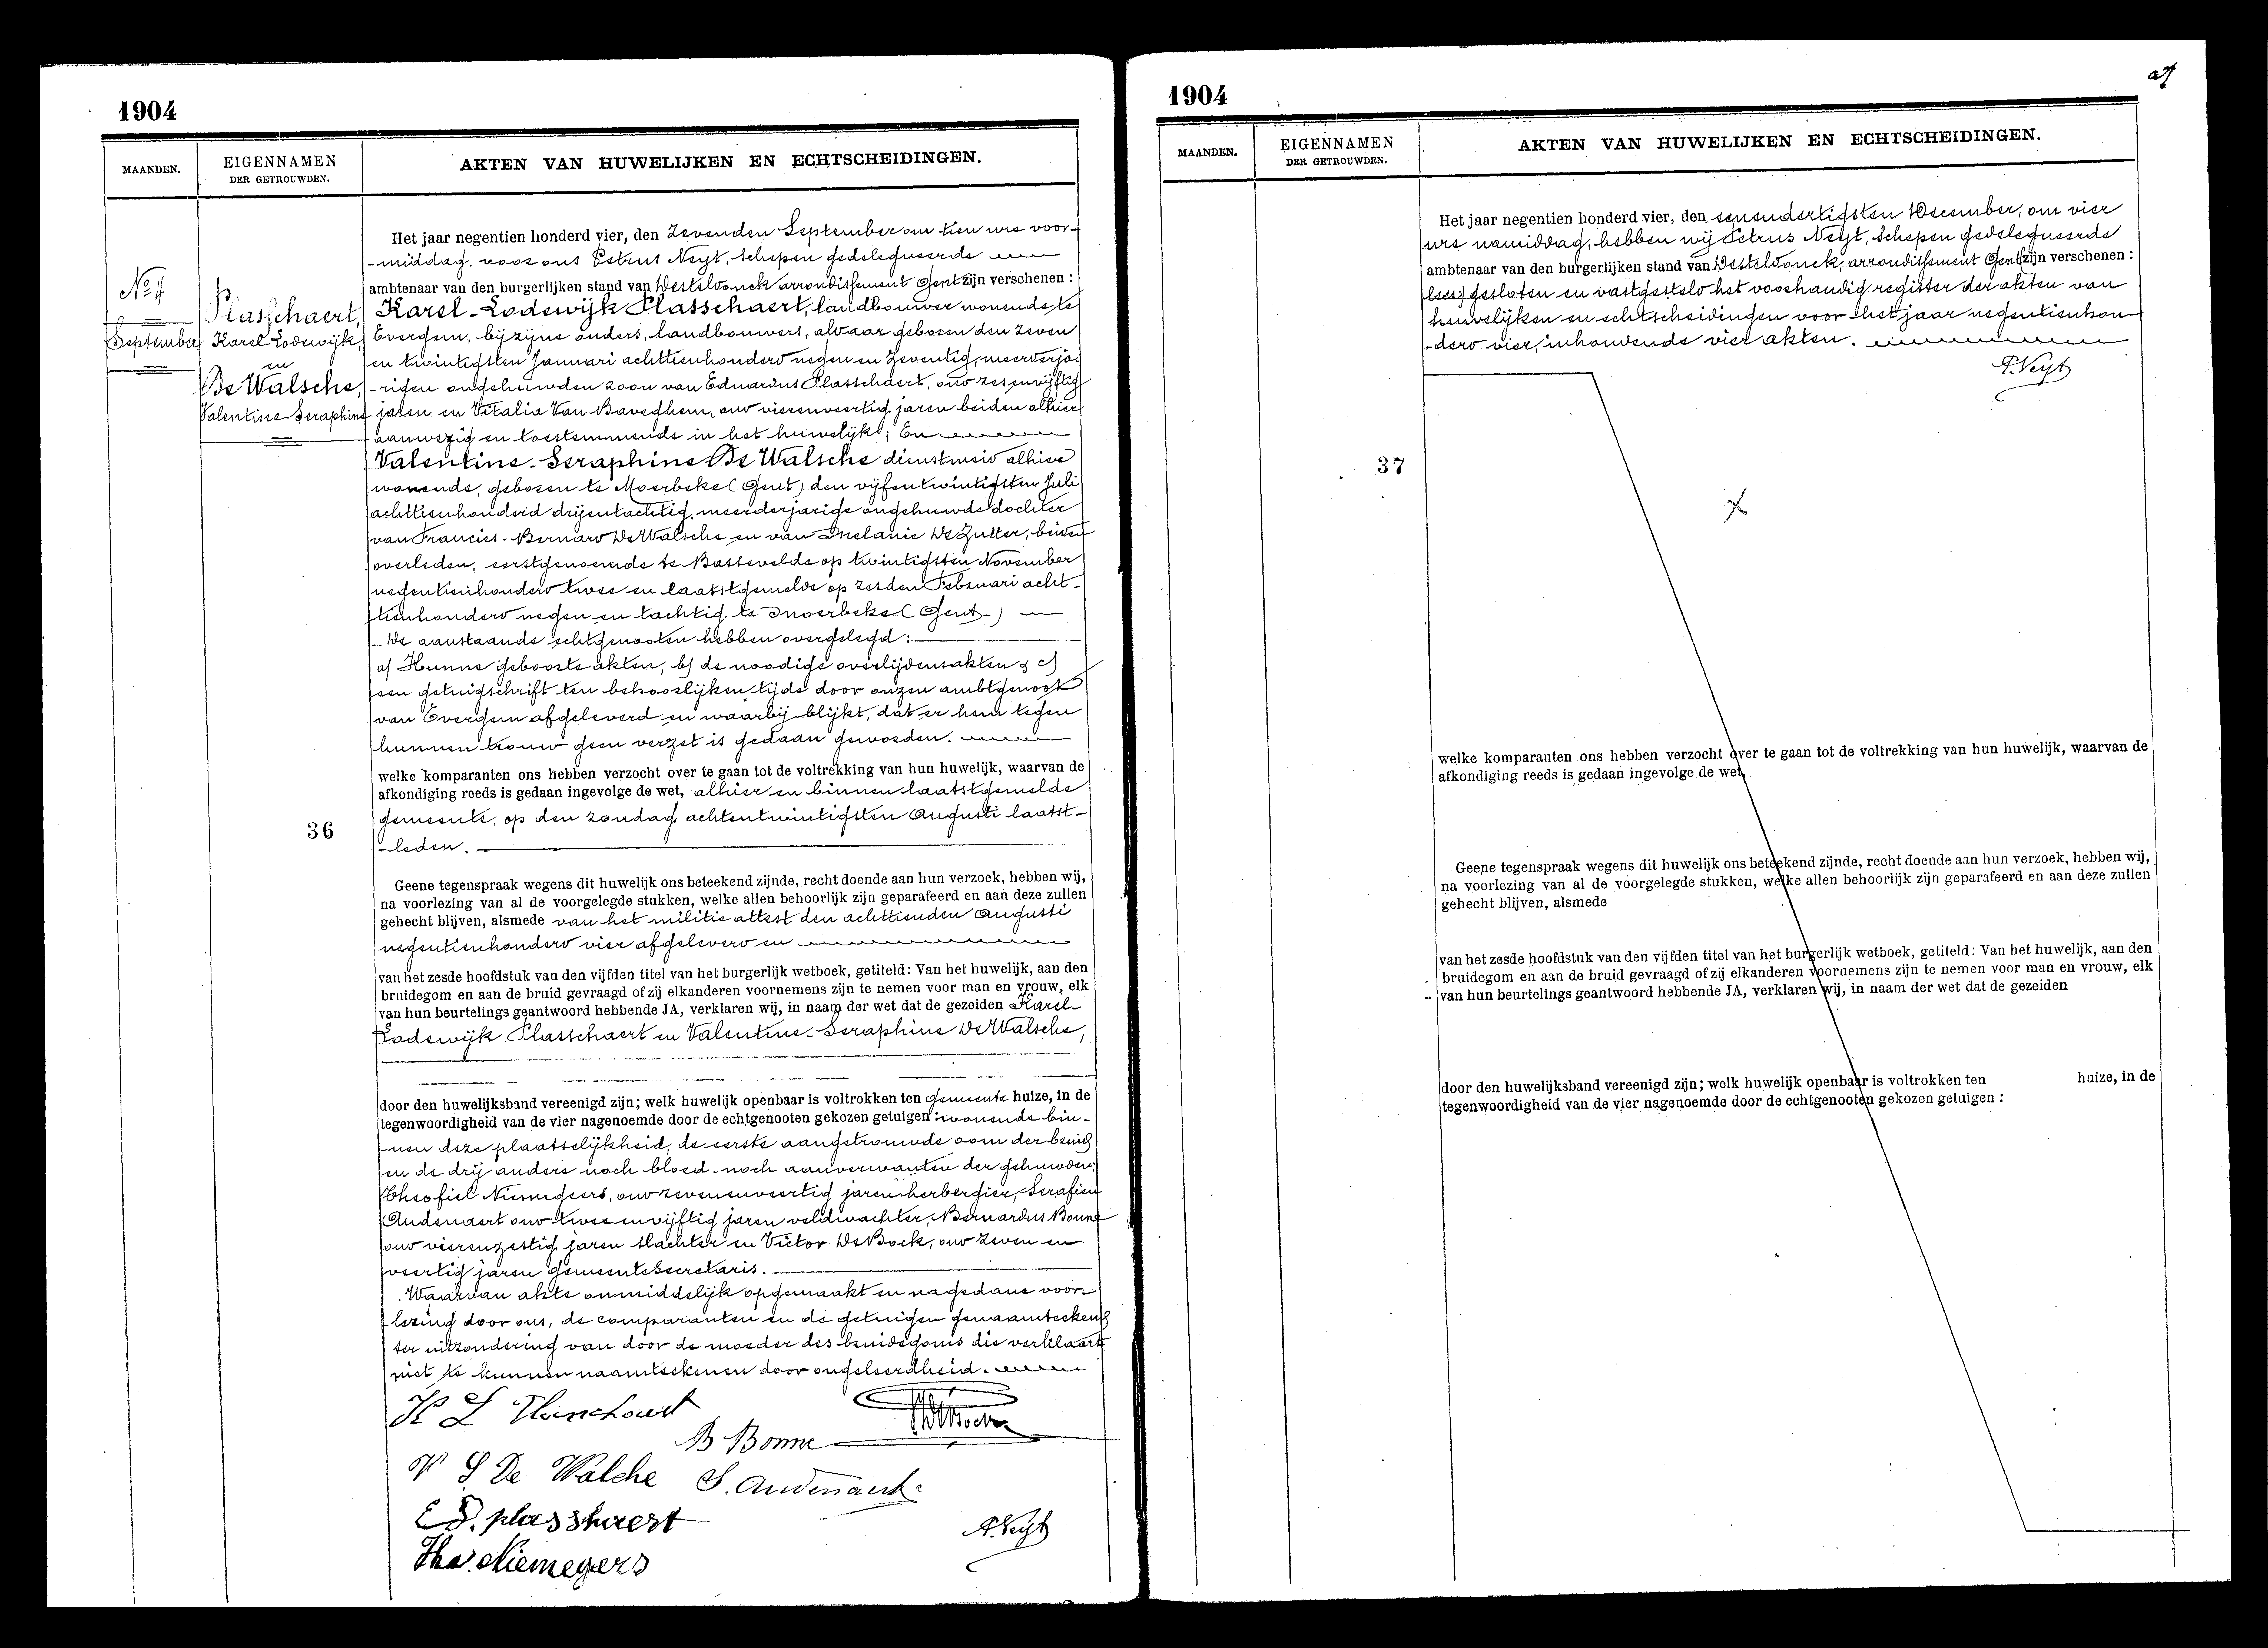 1904
MAANDEN.
EIGENNAMEN
DER GETROUWDEN.
AKTEN VAN HUWELIJKEN EN ECHTSCHEIDINGEN.
No 4
September
Plasschaert,
Karel-Lodewijk,
en
De Walsche,
Valentine-Seraphine
36
Het jaar negentien honderd vier, den zevenden September om tien ure voor-
-middag, voor ons Petrus Neyt, schepen gedelegueerde
ambtenaar van den burgerlijken stand van Desteldonck arrondissement Gent zijn verschenen :
Karel-Lodewijk Plasschaert, landbouwer wonende te
Evergem, bij zijne ouders, landbouwers, aldaar geboren den zeven
en twintigsten Januari achttienhonderd negen en zeventig, meerderja-
-rigen ongehuwden zoon van Eduardus Plasschaert, oud zesenvijftig
jaren en Vitalie Van Baveghem, oud vierenveertig jaren beiden alhier
aanwezig en toestemmende in het huwelijk; En
Valentine-Seraphine De Walsche dienstmeid alhier
wonende, geboren te Moerbeke (Gent) den vijfentwintigsten Juli
achttienhonderd drijentachtig, meerderjarige ongehuwde dochter
van Francies-Bernard De Walsche en van Melanie De Zutter, beiden
overleden, eerstgenoemde te Bassevelde op twintigsten November
negentienhonderd twee en laatstgemelde op zesden Februari acht-
tienhonderd negen en tachtig te Moerbeke (Gent-)
De aanstaande echtgenooten hebben overgelegd :
a) Hunne geboorte akten, b) de noodige overlijdensakten & c)
een getuigschrift ten behoorlijken tijde door onzen ambtgenoot
van Evergem afgeleverd en waarbij blijkt, dat er hem tegen
hunnen trouw geen verzet is gedaan geworden.
welke komparanten ons hebben verzocht over te gaan tot de voltrekking van hun huwelijk, waarvan de
afkondiging reeds is gedaan ingevolge de wet, alhier en binnen laatstgemelde
gemeente, op den zondag, achtentwintigsten Augusti laatst-
-leden.
Geene tegenspraak wegens dit huwelijk ons beteekend zijnde, recht doende aan hun verzoek, hebben wij,
na voorlezing van al de voorgelegde stukken, welke allen behoorlijk zijn geparafeerd en aan deze zullen
gehecht blijven, alsmede van het militie attest den achttienden Augusti
negentienhonderd vier afgeleverd en
van het zesde hoofdstuk van den vijfden titel van het burgerlijk wetboek, getiteld: Van het huwelijk, aan den
bruidegom en aan de bruid gevraagd of zij elkanderen voornemens zijn te nemen voor man en vrouw, elk
van hun beurtelings geantwoord hebbende JA, verklaren wij, in naam der wet dat de gezeiden Karel-
Lodewijk Plasschaert en Valentine-Seraphine De Walsche,
door den huwelijksband vereenigd zijn; welk huwelijk openbaar is voltrokken ten gemeente huize, in de
tegenwoordigheid van de vier nagenoemde door de echtgenooten gekozen getuigen : wonende bin-
-nen deze plaatselijkheid, de eerste aangetrouwde oom der bruid
en de drij andere noch bloed- noch aanverwanten der gehuwden:
Theofiel Niemegeers, oud zevenenveertig jaren herbergier, Serafien
Audenaert oud twee envijftig jaren veldwachter, Bernardus Bonne
oud vierenzestig jaren slachter en Victor De Bock, oud zeven en
veertig jaren gemeentesecretaris.
Waarvan akte onmiddelijk opgemaakt en na gedane voor-
lezing door ons, de comparanten en de getuigen genaamteekend
ter uitzondering van door de moeder des bruidegoms die verklaart
niet te kunnen naamteekenen door ongeleerdheid.
K L Plasschaert
B Bonne
V S De Walche S. Audenaert
Ed. plasschaert
A. Neyt
Theo. Niemegers
1904
MAANDEN.
EIGENNAMEN
DER GETROUWDEN.
AKTEN VAN HUWELIJKEN EN ECHTSCHEIDINGEN.
37
Het jaar negentien honderd vier, den eenendertigsten December, om vier
ure namiddag, hebben wij Petrus Neyt, schepen gedelegueerde
ambtenaar van den burgerlijken stand van Desteldonck, arrondissement Gent zijn verschenen :
(lees:) gesloten en vastgesteld het voorhandig register der akten van
huwelijken en echtscheidingen voor het jaar negentienhon-
-derd vier, inhoudende vier akten.
A. Neyt
welke komparanten ons hebben verzocht over te gaan tot de voltrekking van hun huwelijk, waarvan de
afkondiging reeds is gedaan ingevolge de wet,
Geene tegenspraak wegens dit huwelijk ons beteekend zijnde, recht doende aan hun verzoek, hebben wij,
na voorlezing van al de voorgelegde stukken, welke allen behoorlijk zijn geparafeerd en aan deze zullen
gehecht blijven, alsmede
van het zesde hoofdstuk van den vijfden titel van het burgerlijk wetboek, getiteld: Van het huwelijk, aan den
bruidegom en aan de bruid gevraagd of zij elkanderen voornemens zijn te nemen voor man en vrouw, elk
van hun beurtelings geantwoord hebbende JA, verklaren wij, in naam der wet dat de gezeiden
door den huwelijksband vereenigd zijn; welk huwelijk openbaar is voltrokken ten huize, in de
tegenwoordigheid van de vier nagenoemde door de echtgenooten gekozen getuigen :